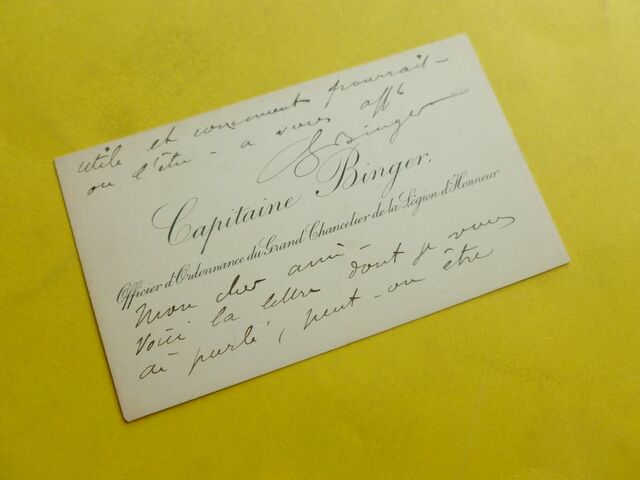 utile et comment pourrait-
on l'être - a vous afft
GBinger
Capitaine Binger.
Officier d'Ordonnance du Grand Chancelier de la Légion d'Honneur
Mon cher ami -
Voici la lettre dont je vous
ai parlé, peut-on être